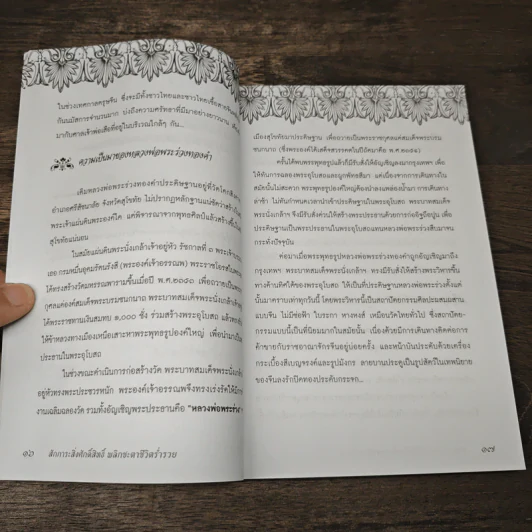 ในช่วงเทศกาลตรุษจีน ซึ่งจะมีทั้งชาวไทยและชาวไทยเชื้อสายจีน
กันนมัสการจำนวนมาก บ่งถึงความศรัทธาที่มีมาอย่างยาวนาน
มากับศาลเจ้าพ่อเสือที่อยู่ในบริเวณใกล้ๆ กัน...
ความเป็นมาของหลวงพ่อพระร่วงทองคำ
เดิมหลวงพ่อพระร่วงทองคำประดิษฐานอยู่ที่วัดโคก
อำเภอศรีสัชนาลัย จังหวัดสุโขทัย ไม่ปรากฏหลักฐานแน่ชัดว่าสร้าง
พระเจ้าแผ่นดินพระองค์ใด แต่พิจารณาจากพุทธศิลป์แล้วสร้างขึ้นใน
สุโขทัยแน่นอน
ในสมัยแผ่นดินพระนั่งเกล้าเจ้าอยู่หัว รัชกาลที่ ๓ พระเจ้า
เธอ กรมหมื่นอุดมรัตนรังสี (พระองค์เจ้าอรรณพ) พระราชโอรส
ได้ทรงสร้างวัดมหรรณพารามขึ้นเมื่อปี พ.ศ.๒๓๙๓ เพื่อถวายเป็น
กุศลแด่องค์สมเด็จพระบรมชนกนาถ พระบาทสมเด็จพระนั่งเกล้าเจ้าอยู่หัว
ได้พระราชทานเงินสมทบ ๑,๐๐๐ ชั่ง ร่วมสร้างพระอุโบสถ แล้ว
ให้ข้าหลวงทางเมืองเหนือเสาะหาพระพุทธรูปองค์ใหญ่ เพื่อนำมาเป็น
ประธานในพระอุโบสถ
ในช่วงขณะดำเนินการก่อสร้างวัด พระบาทสมเด็จพระนั่งเกล้า
อยู่หัวทรงพระประชวรหนัก พระองค์เจ้าอรรณพจึงทรงเร่งรัดให้มี
งานเฉลิมฉลองวัด รวมทั้งอัญเชิญพระประธานคือ "หลวงพ่อพระร่วง"
๑๖ สักการะสิ่งศักดิ์สิทธิ์ พลิกชะตาชีวิตร่ำรวย
เมืองสุโขทัยมาประดิษฐาน เพื่อถวายเป็นพระราชกุศลแด่สมเด็จพระบรม
ชนกนาถ (ซึ่งพระองค์ได้เสด็จสวรรคตในปีถัดมาคือ พ.ศ.๒๓๙๔)
ครั้นได้พบพระพุทธรูปแล้วก็มีรับสั่งให้อัญเชิญลงมากรุงเทพฯ เพื่อ
ให้ทันการฉลองพระอุโบสถและผูกพัทธสีมา แต่เนื่องจากการเดินทางใน
สมัยนั้นไม่สะดวก พระพุทธรูปองค์ใหญ่ก็ต้องนำลงแพล่องน้ำมา การเดินทาง
ล่าช้า ไม่ทันกำหนดเวลานำเข้าประดิษฐานในพระอุโบสถ พระบาทสมเด็จ
พระนั่งเกล้าฯ จึงมีรับสั่งด่วนให้สร้างพระประธานด้วยการก่ออิฐถือปูน เพื่อ
ประดิษฐานเป็นพระประธานในพระอุโบสถแทนหลวงพ่อพระร่วงสืบมาจน
กระทั่งปัจจุบัน
ต่อมาเมื่อพระพุทธรูปหลวงพ่อพระร่วงทองคำถูกอัญเชิญมาถึง
กรุงเทพฯ พระบาทสมเด็จพระนั่งเกล้าฯ ทรงมีรับสั่งให้สร้างพระวิหารขึ้น
ทางด้านทิศใต้ของพระอุโบสถ ให้เป็นที่ประดิษฐานหลวงพ่อพระร่วงตั้งแต่
นั้นมาคราบเท่าทุกวันนี้ โดยพระวิหารนี้เป็นสถาปัตยกรรมศิลปะผสมผสาน
แบบจีน ไม่มีช่อฟ้า ใบระกา หางหงส์ เหมือนวัดไทยทั่วไป ซึ่งสถาปัตย-
กรรมแบบนี้เป็นที่นิยมมากในสมัยนั้น เนื่องด้วยมีการเดินทางติดต่อการ
ค้าขายกับราชอาณาจักรจีนอยู่บ่อยครั้ง และหน้าบันประดับด้วยเครื่อง
กระเบื้องสีเบญจรงค์และรูปมังกร ลายบานประตูเป็นรูปสัตว์ในเทพนิยาย
ของจีนลงรักปิดทองประดับกระจก...